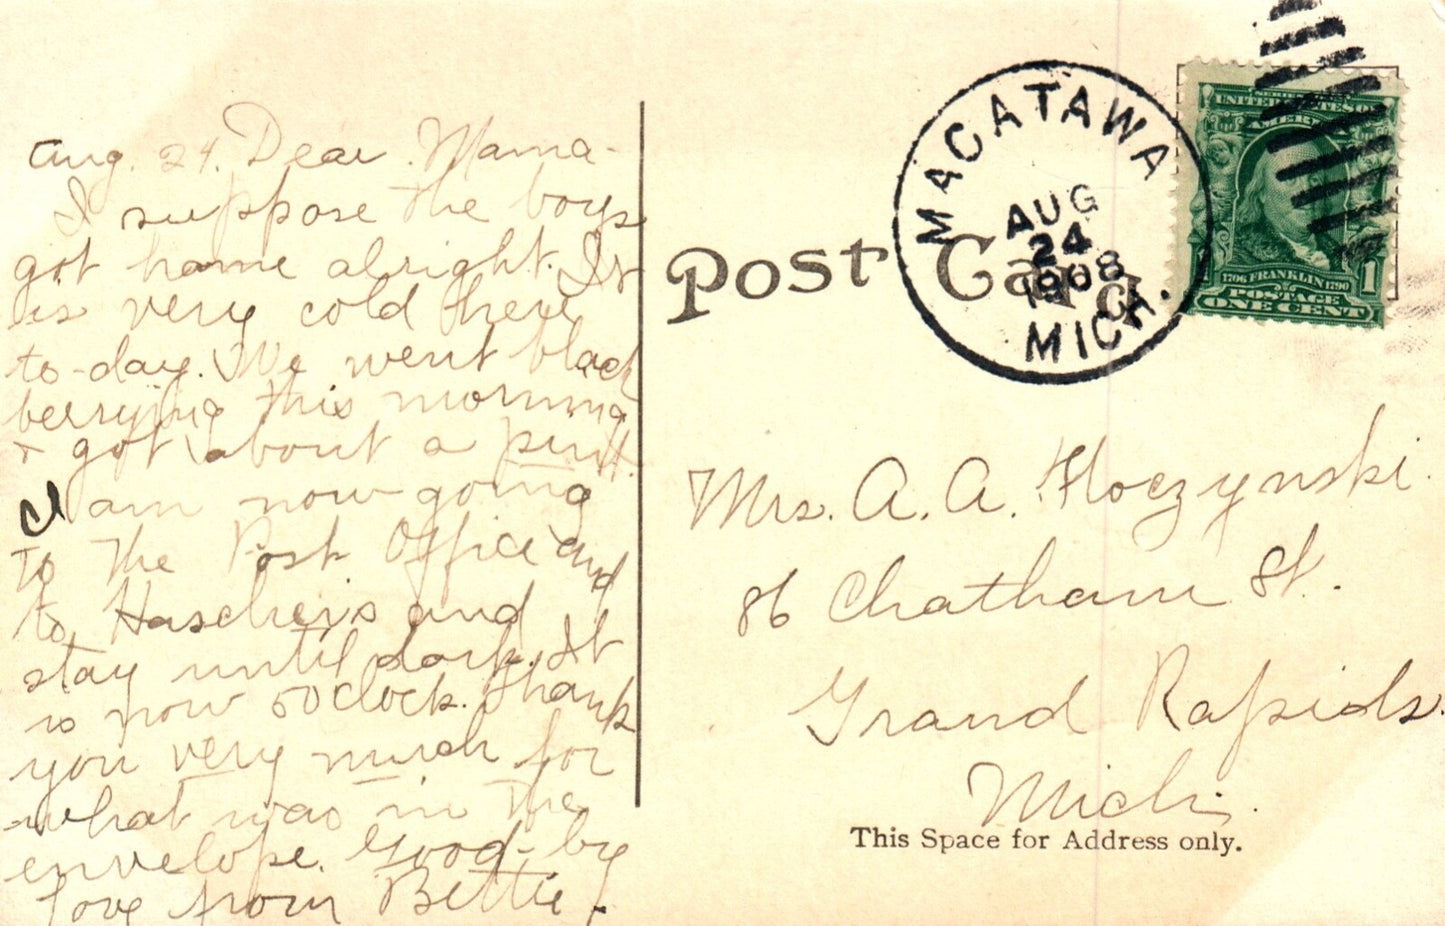 Aug. 24. Dear Mama-
I suppose the boys
got home alright. It
is very cold here
to-day. We went black
berrying this morning
+ got about a pint.
I am now going
to the Post Office and
to Hascheris and
stay until dark. It
is now 5 O'clock. Thank
you very much for
what was in the
envelope. Good-by
love from Bettie.
Post Card
MACATAWA
AUG
24
1908
MICH.
SERIES 1902
UNITED STATES OF
AMERICA
1706 FRANKLIN 1790
POSTAGE
1
ONE CENT
Mrs. A. A. Floczynski.
86 Chatham St.
Grand Rapids.
Mich.
This Space for Address only.